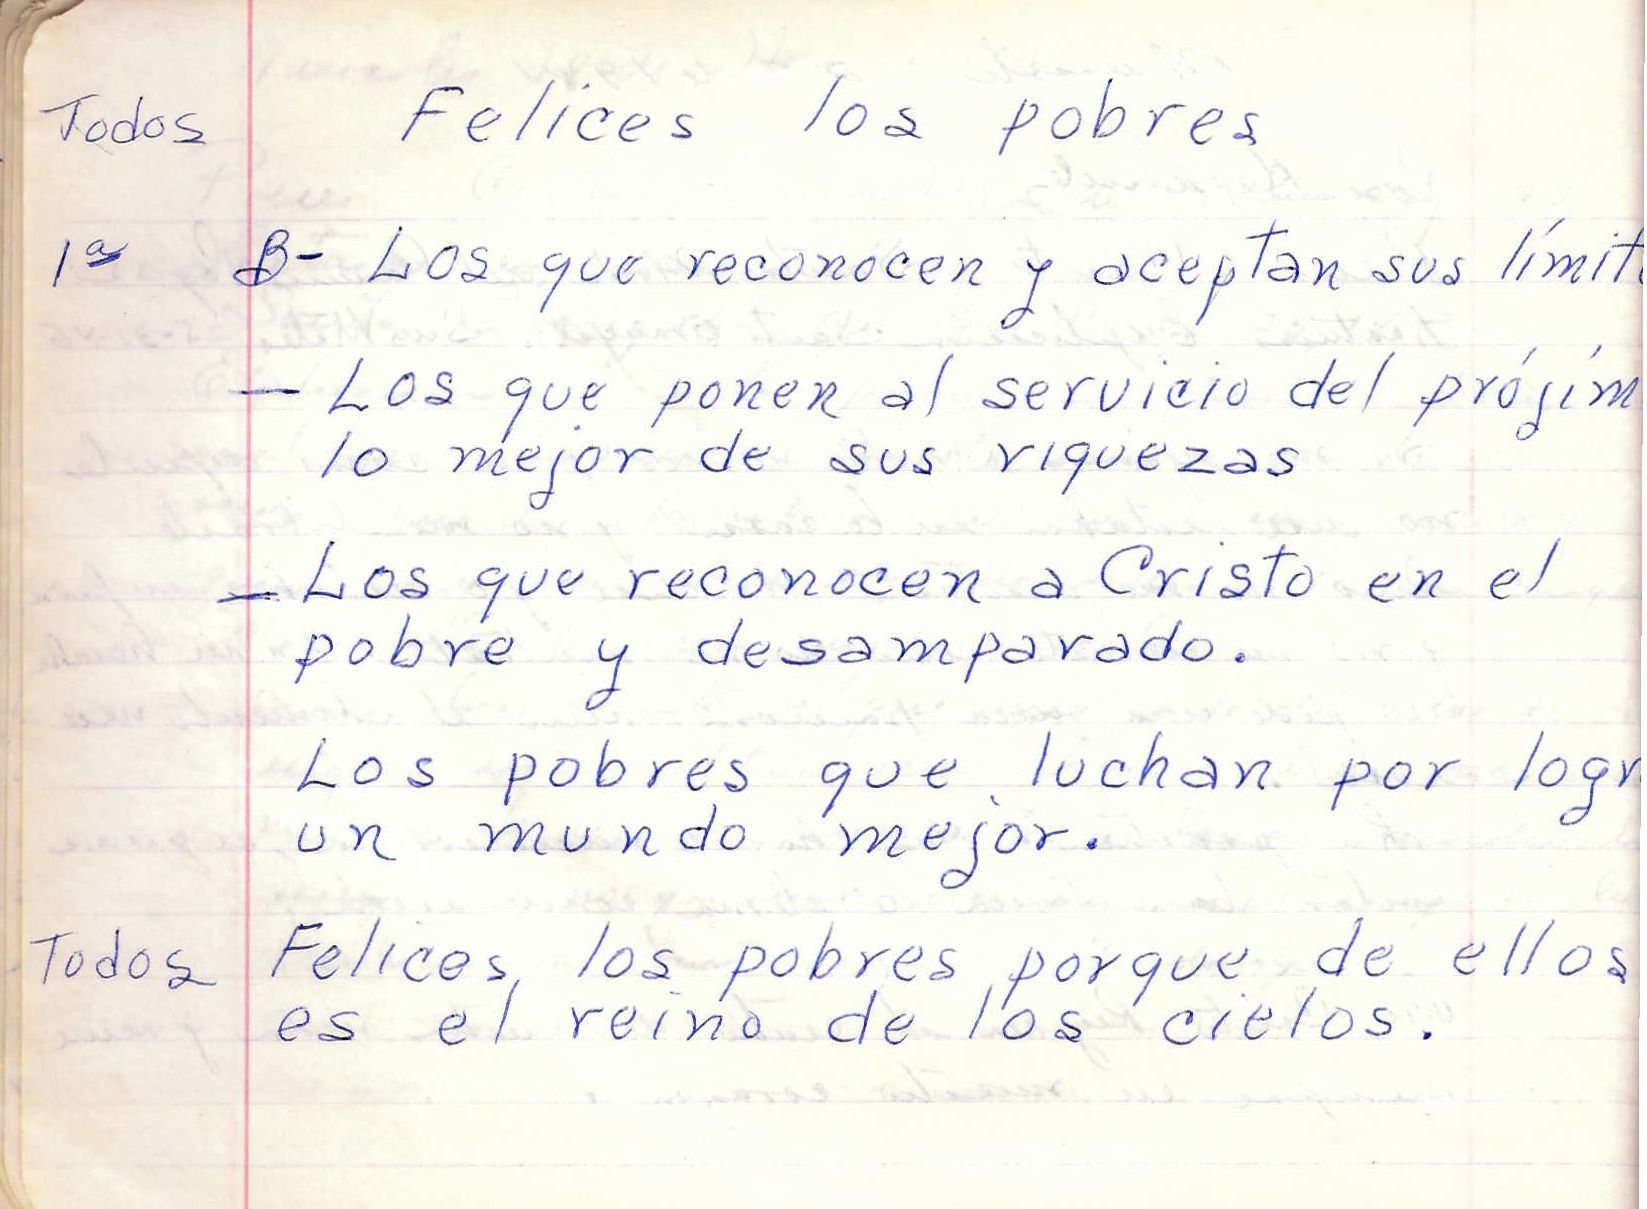 Todos Felices los pobres
1ª B- Los que reconocen y aceptan sus límit
— Los que ponen al servicio del prójim
lo mejor de sus riquezas
— Los que reconocen a Cristo en el
pobre y desamparado.
Los pobres que luchan por logr
un mundo mejor.
Todos Felices los pobres porque de ellos
es el reino de los cielos.